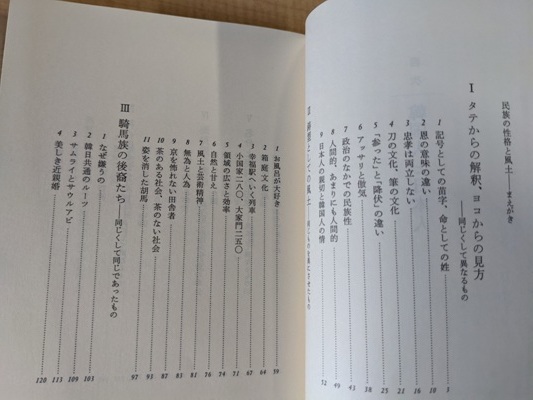 民族の性格と風土――まえがき
I タテからの解釈、ヨコからの見方
――同じくして異なるもの
1 記号としての苗字、命としての姓 5
2 恩の意味の違い 10
3 忠孝は両立しない 16
4 刀の文化、筆の文化 21
5 「参った」と「降伏」の違い 25
6 アッサリと傲気
7 政治のなかでの民族性
8 人間的、あまりにも人間的
9 日本人の親切と韓国人の情 52
1 お風呂が大好き 59
2 箱庭文化 64
3 幸福がいく列車 67
4 小国家二八〇、大家門二五〇 71
5 領域の広さと効率 74
6 自然と甘え 76
7 風土と芸術精神 81
8 無為と人為 83
9 京を怖れない田舎者 85
10 茶のある社会、茶のない社会 87
11 姿を消した胡馬 93
97
III 騎馬族の後裔たち
――同じくして同じであったもの
1 なぜ嫌うの
2 韓日共通のルーツ 103
3 サムライとサウルアビ 109
4 美しき近親婚 113
120